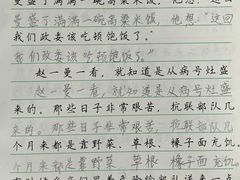 曼盛了满满一碗高粱米饭，他想："这回
曼盛了满满一碗高粱米饭，他想："这回
我们政委该吃顿饱饭了。"
我们政委该吃顿饱饭了。"
赵一曼一看，就知道是从病号灶盛
赵一曼一看，就知道是从病号灶盛
来的。那些日子非常艰苦，抗联部队几
来的。那些日子非常艰苦，抗联部队几
个月来都是靠野菜、草根、橡子面充饥。
个月来都是靠野菜、草根、橡子面充饥。